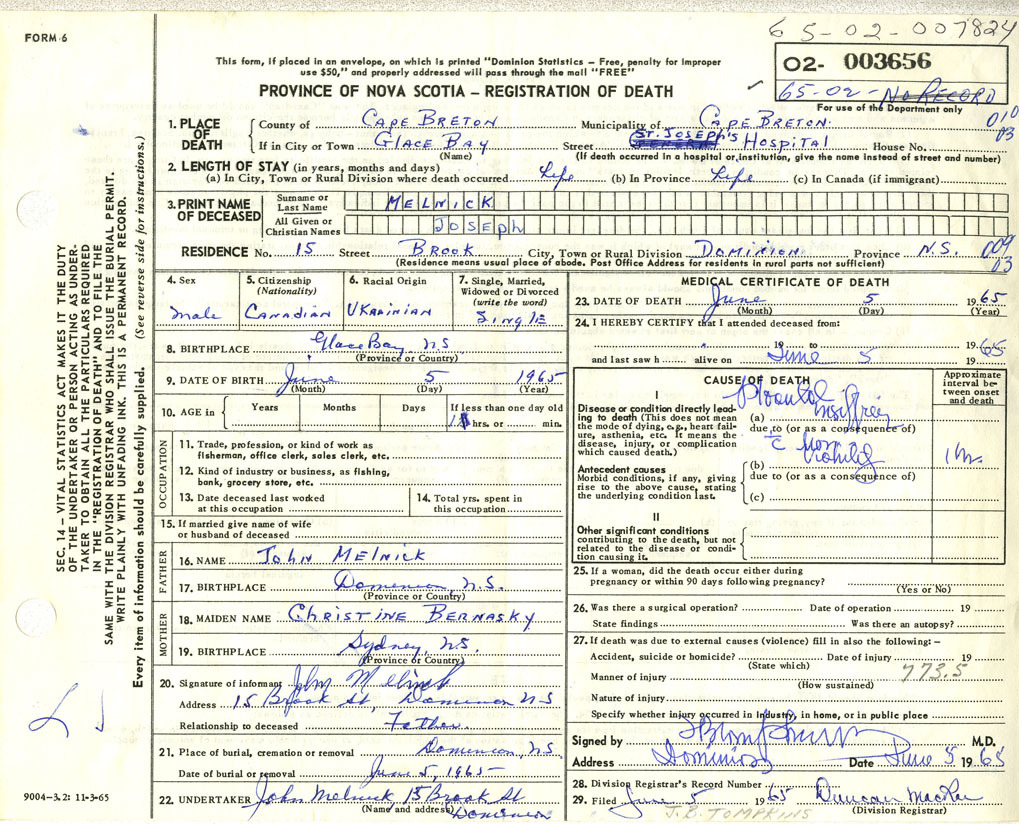 FORM 6
65-02-007824
02- 003656
65-02- No RECORD
For use of the Department only
010
03
This form, if placed in an envelope, on which is printed "Dominion Statistics – Free, penalty for improper
use $50," and properly addressed will pass through the mail "FREE"
PROVINCE OF NOVA SCOTIA – REGISTRATION OF DEATH
1. PLACE OF DEATH
County of CAPE BRETON Municipality of CAPE BRETON
If in City or Town GLACE BAY Street ST. JOSEPH'S GENERAL HOSPITAL House No.
(Name) (If death occurred in a hospital or institution, give the name instead of street and number)
2. LENGTH OF STAY (in years, months and days)
(a) In City, Town or Rural Division where death occurred Life (b) In Province Life (c) In Canada (if immigrant)
3. PRINT NAME OF DECEASED
Surname or Last Name MELNICK
All Given or Christian Names JOSEPH
RESIDENCE No. 15 Street BROOK City, Town or Rural Division DOMINION Province N.S. 009
03
(Residence means usual place of abode. Post Office Address for residents in rural parts not sufficient)
4. Sex
male
5. Citizenship
(Nationality)
CANADIAN
6. Racial Origin
UKRAINIAN
7. Single, Married,
Widowed or Divorced
(write the word)
SINGLE
8. BIRTHPLACE Glace Bay, N.S
(Province or Country)
9. DATE OF BIRTH June 5 1965
(Month) (Day) (Year)
10. AGE in
Years Months Days If less than one day old
1 hrs. or min.
OCCUPATION
11. Trade, profession, or kind of work as
fisherman, office clerk, sales clerk, etc.
12. Kind of industry or business, as fishing,
bank, grocery store, etc.
13. Date deceased last worked
at this occupation
14. Total yrs. spent in
this occupation
15. If married give name of wife
or husband of deceased
FATHER
16. NAME JOHN MELNICK
17. BIRTHPLACE Dominion N.S.
(Province or Country)
MOTHER
18. MAIDEN NAME CHRISTINE BERNASKY
19. BIRTHPLACE Sydney, N.S.
(Province or Country)
20. Signature of informant John Melnick
Address 15 Brook St, Dominion NS
Relationship to deceased Father
21. Place of burial, cremation or removal Dominion, NS.
Date of burial or removal June 5, 1965
22. UNDERTAKER John Melnick, 15 Brook St
(Name and address) Dominion
MEDICAL CERTIFICATE OF DEATH
23. DATE OF DEATH June 5 1965
(Month) (Day) (Year)
24. I HEREBY CERTIFY that I attended deceased from:
19 to 1965
and last saw h alive on June 5 19
CAUSE OF DEATH
Approximate
interval be-
tween onset
and death
I
Disease or condition directly lead-
ing to death (This does not mean
the mode of dying, e.g., heart fail-
ure, asthenia, etc. It means the
disease, injury, or complication
which caused death.)
(a)
due to (or as a consequence of)
Antecedent causes
Morbid conditions, if any, giving
rise to the above cause, stating
the underlying condition last.
(b)
due to (or as a consequence of)
(c)
II
Other significant conditions
contributing to the death, but not
related to the disease or condi-
tion causing it.
25. If a woman, did the death occur either during
pregnancy or within 90 days following pregnancy?
(Yes or No)
26. Was there a surgical operation? Date of operation 19
State findings Was there an autopsy?
27. If death was due to external causes (violence) fill in also the following: –
Accident, suicide or homicide? Date of injury 19
(State which) 773.5
Manner of injury
(How sustained)
Nature of injury
Specify whether injury occurred in Industry, in home, or in public place
Signed by M.D.
Address Dominion Date June 5 1965
28. Division Registrar's Record Number
29. Filed June 5 1965 Duncan MacRae
(Division Registrar)
J.B. TOMPKINS
SEC. 14 – VITAL STATISTICS ACT MAKES IT THE DUTY
OF THE UNDERTAKER OR PERSON ACTING AS UNDER-
TAKER TO OBTAIN ALL THE PARTICULARS REQUIRED
IN THE "REGISTRATION OF DEATH" AND TO FILE THE
SAME WITH THE DIVISION REGISTRAR WHO SHALL ISSUE THE BURIAL PERMIT.
WRITE PLAINLY WITH UNFADING INK. THIS IS A PERMANENT RECORD.
Every item of information should be carefully supplied. (See reverse side for instructions.)
9004–3.2: 11-3-65